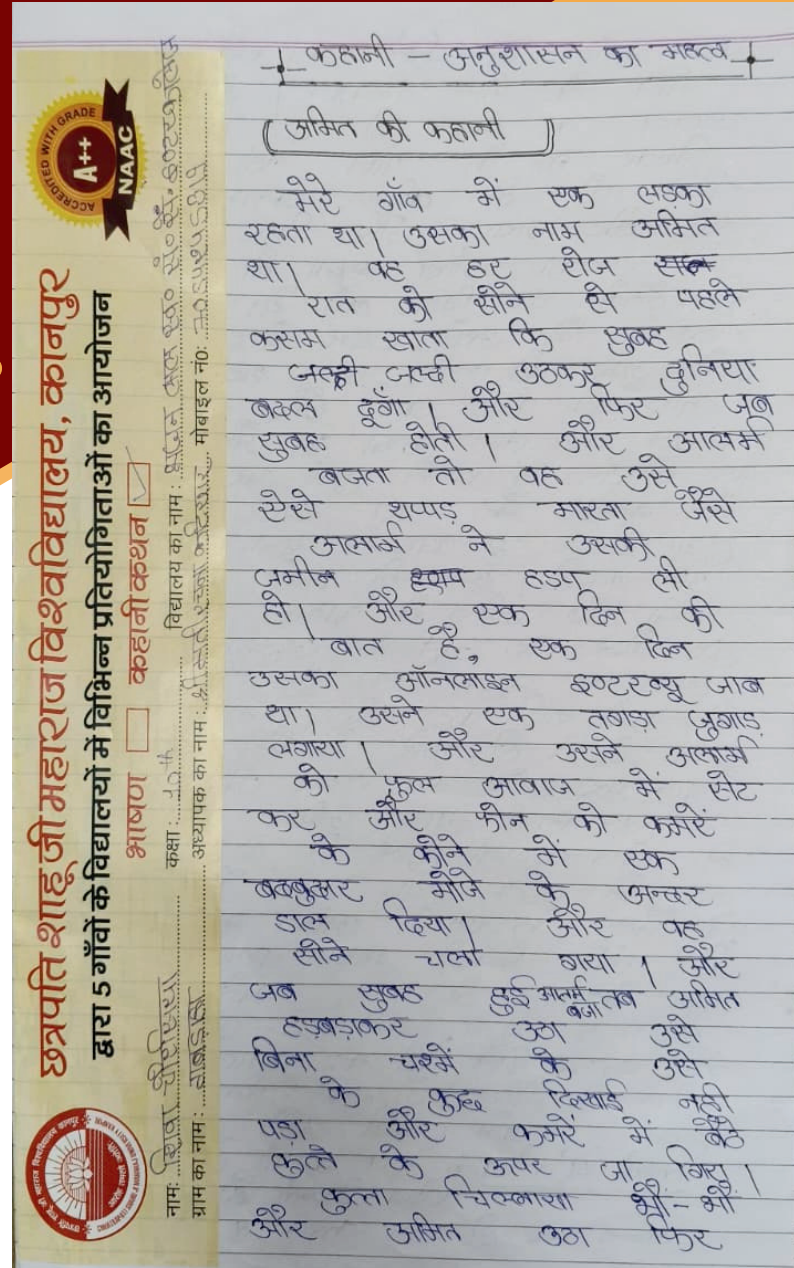 छत्रपति शाहू जी महाराज विश्वविद्यालय, कानपुर
द्वारा 5 गाँवों के विद्यालयों में विभिन्न प्रतियोगिताओं का आयोजन
भाषण कहानी कथन
नाम: कक्षा: 10th विद्यालय का नाम:
ग्राम का नाम: अध्यापक का नाम: श्रीमती रचना मोबाइल नं०:
ACCREDITED WITH GRADE
A++
NAAC
कहानी - अनुशासन का महत्व
(अमित की कहानी)
मेरे गाँव में एक लडका
रहता था। उसका नाम अमित
था। वह हर रोज
रात को सोने से पहले
कसम खाता कि सुबह
जल्दी जल्दी उठकर दुनिया
बदल दूँगा। और फिर जब
सुबह होती। और आलर्म
बजता तो वह उसे
ऐसे थप्पड़ मारता जैसे
अलार्म ने उसकी
जमीन हडप ली
हो। और एक दिन की
बात है, एक दिन
उसका ऑनलाइन इण्टरव्यू जाब
था। उसने एक तगड़ा जुगाड़
लगाया। और उसने अलार्म
को फुल आवाज में सेट
कर और फोन को कमरें
के कोने में एक
बदबुदार मोजे के अन्दर
डाल दिया। और वह
सोने चला गया। और
जब सुबह हुई आलर्म बजा तब अमित
हड़बड़ाकर उठा उसे
बिना चश्में के उसे
के कुछ दिखाई नही
पड़ा और कमरें में बैठे
कुत्ते के ऊपर जा गिरा।
कुत्ता चिल्लाया भौ-भौ
और अमित उठा फिर